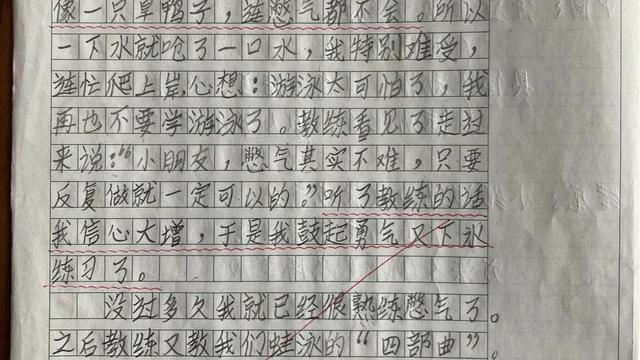 像一只旱鸭子，连憋气都不会。所以
一下水就呛了一口水，我特别难受，
连忙爬上岸，心想：游泳太可怕了，我
再也不要学游泳了。教练看见了走过
来说：“小朋友，憋气其实不难，只要
反复做就一定可以的。”听了教练的话
我信心大增，于是我鼓起勇气又下水
练习了。
没过多久我就已经很熟练憋气了。
之后教练又教我们蛙泳的“四部曲”。